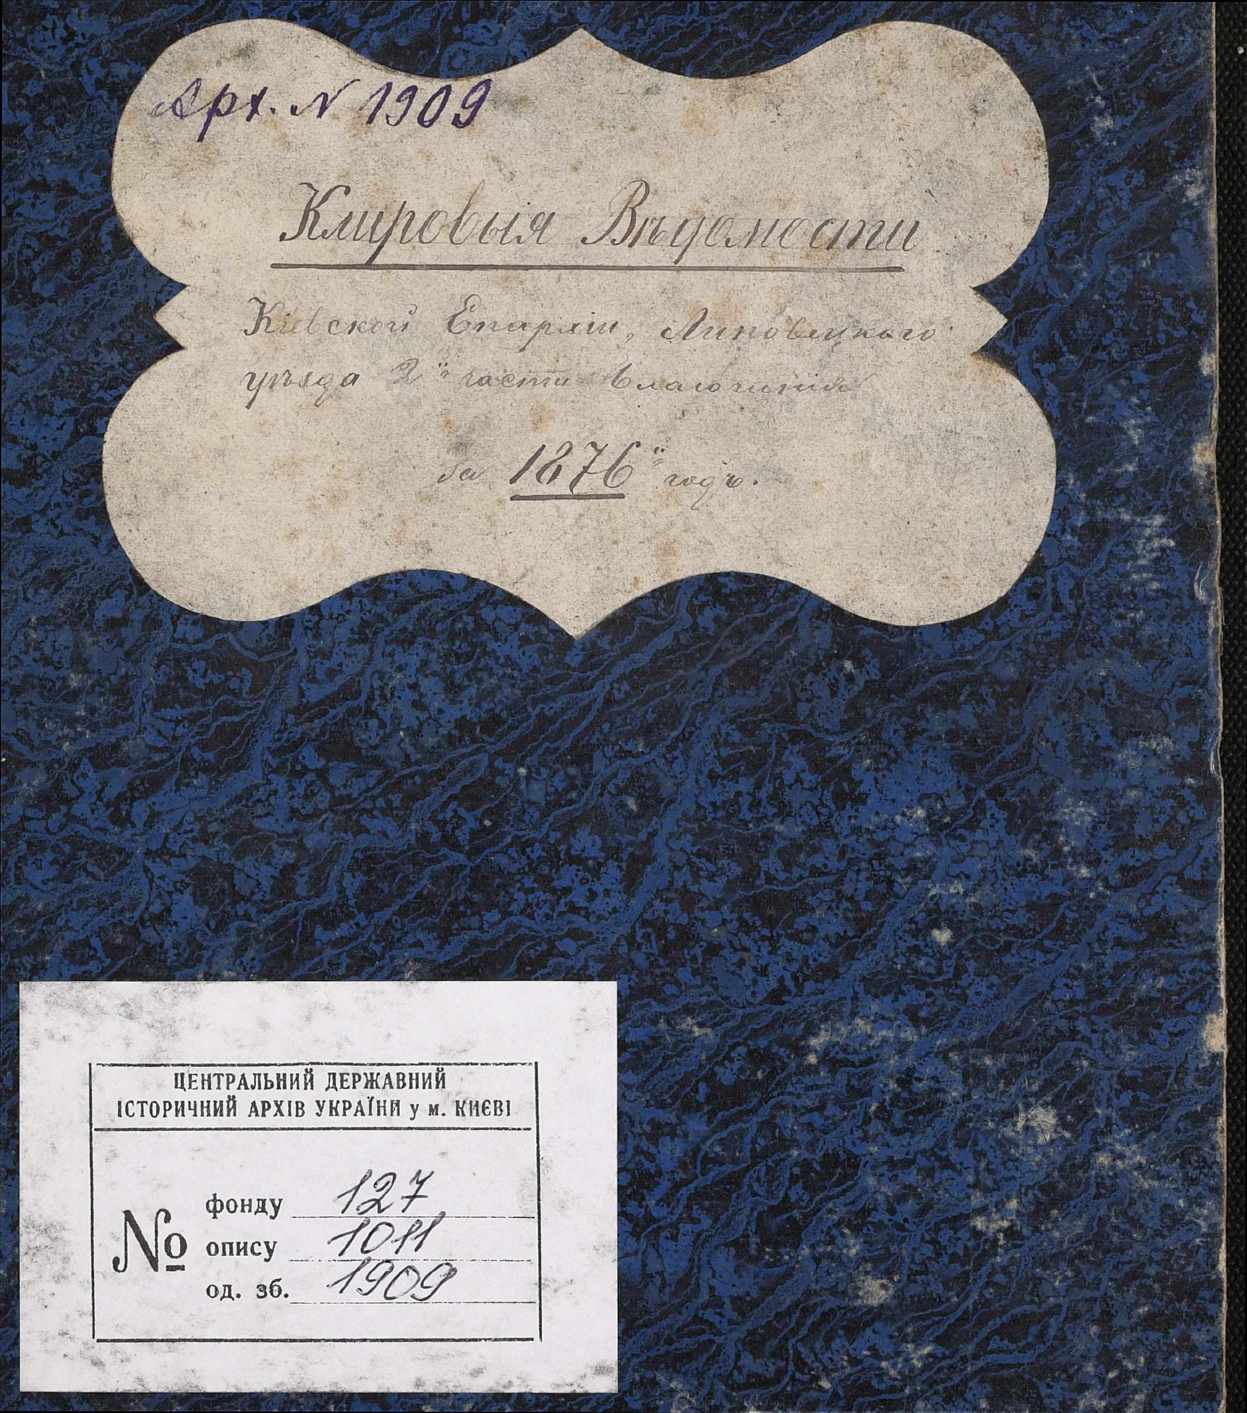 Арх. N 1909
Клировыя Вѣдомости
Кіевской Епархіи, Липовецкаго
уѣзда 2й части благочинія
за 1876й годъ.
ЦЕНТРАЛЬНИЙ ДЕРЖАВНИЙ
ІСТОРИЧНИЙ АРХІВ УКРАЇНИ у м. КИЄВІ
№
фонду 127
опису 1011
од. зб. 1909